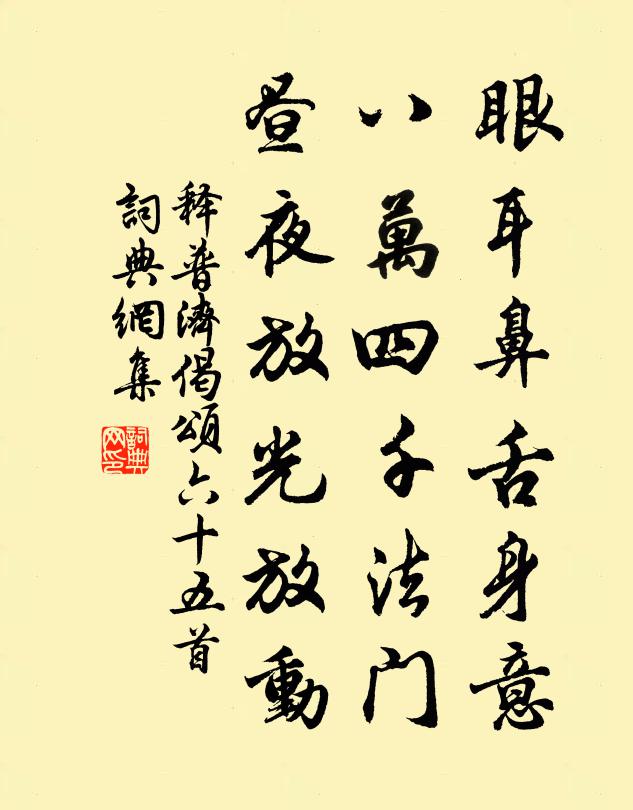 眼耳鼻舌身意
八萬四千法門
昼夜放光放動
释普濟偈頌六十五首
詞典網集
詞典
网印